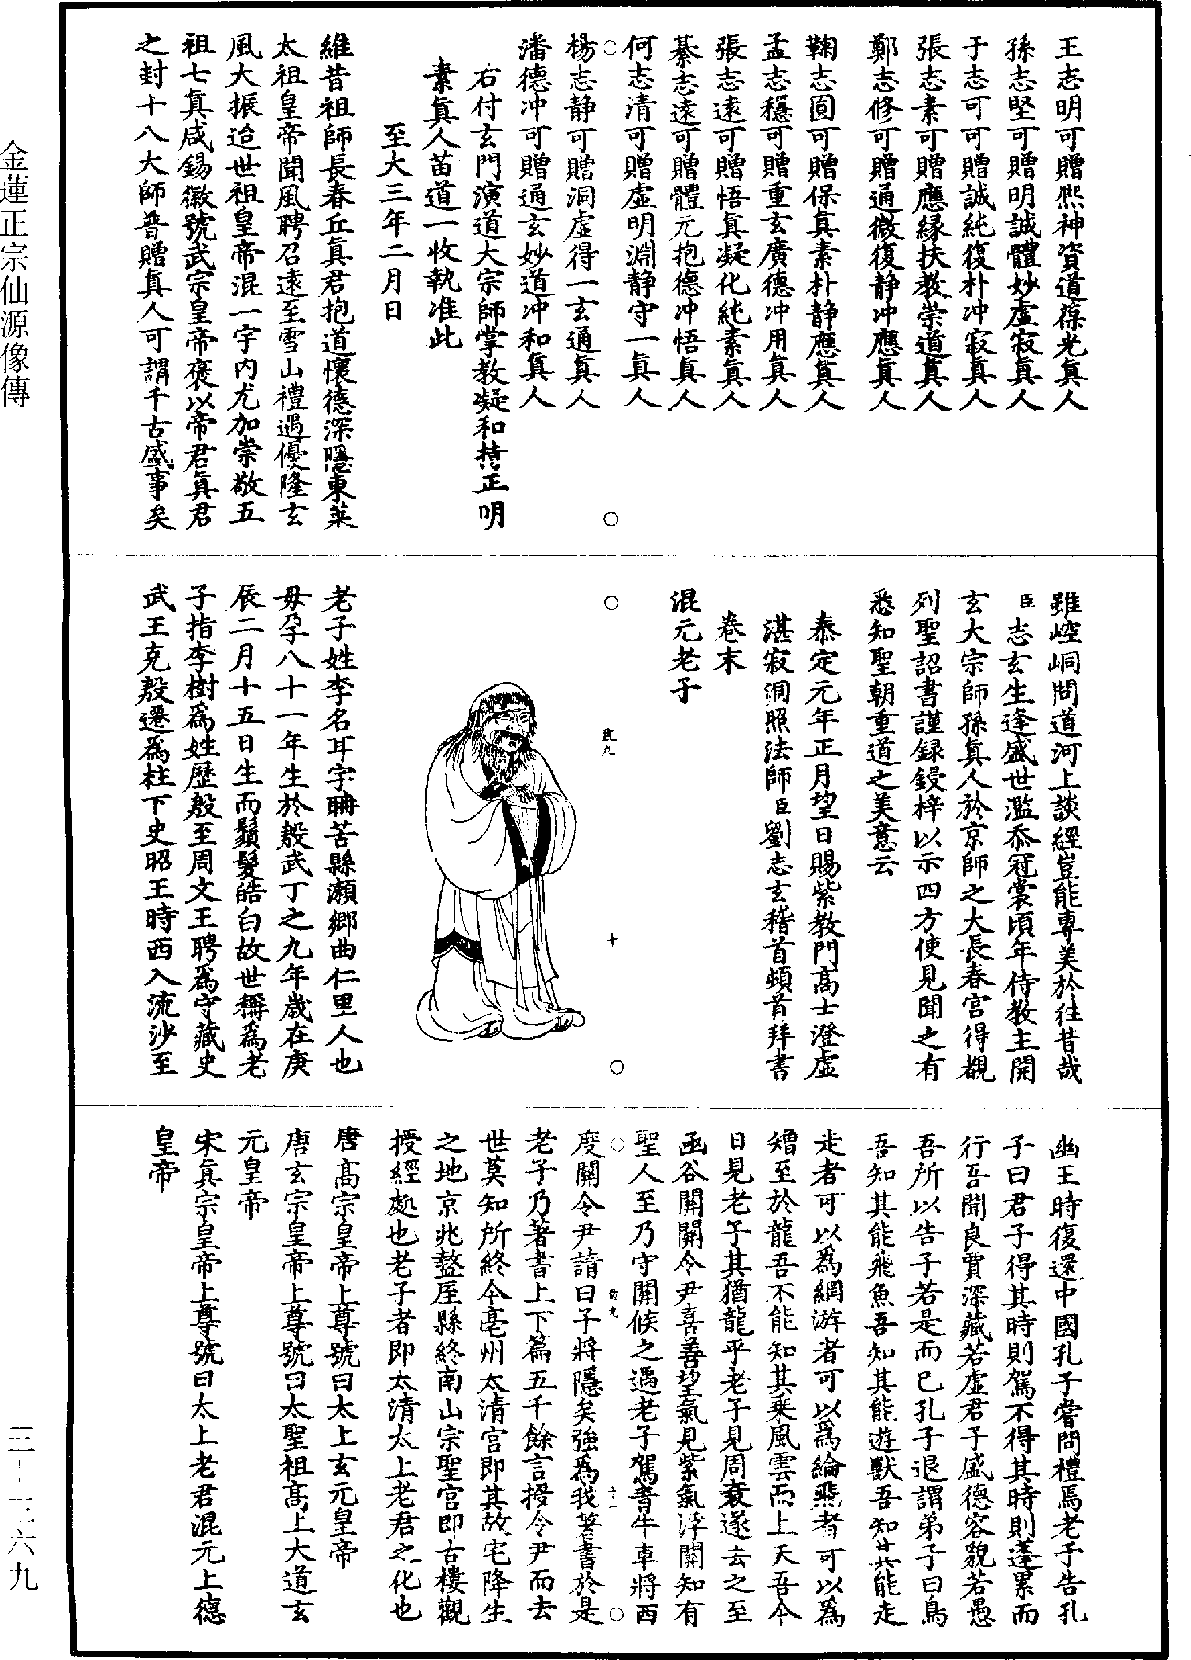 王志明可贈熙神資道葆光眞人
孫志堅可贈明誠體妙虛寂眞人
于志可可贈誠純復朴冲寂眞人
張志素可贈應緣扶教崇道眞人
鄭志修可贈通微復静冲應眞人
鞠志圓可贈保眞素朴静應眞人
孟志穩可贈重玄廣德冲用眞人
張志遠可贈悟眞凝化純素眞人
綦志遠可贈體元抱德冲悟眞人
何志清可贈虛明淵静守一眞人
○
○
楊志静可贈洞虛得一玄通眞人
潘德冲可贈通玄妙道冲和眞人
右付玄門演道大宗師掌教凝和持正明
素眞人苗道一收執准此
至大三年二月日
維昔祖師長春丘眞君抱道懷德深隱東萊
太祖皇帝聞風聘召遠至雪山禮遇優隆玄
風大振迨世祖皇帝混一宇内尤加崇敬五
祖七眞咸錫徽號武宗皇帝褒以帝君眞君
之封十八大師普贈眞人可謂千古盛事矣
雖崆峒問道河上談經豈能專美於往昔哉
臣志玄生逢盛世濫忝冠裳頃年侍教主開
玄大宗師孫眞人於京師之大長春宮得覩
列聖詔書謹録鋟梓以示四方使見聞之有
悉知聖朝重道之美意云
泰定元年正月望日賜紫教門高士澄虛
湛寂洞照法師臣劉志玄稽首頓首拜書
卷末
混元老子
○
九
十
○
老子姓李名耳字聃苦縣瀬鄉曲仁里人也
母孕八十一年生於殷武丁之九年歲在庚
辰二月十五日生而鬚髮皓白故世稱爲老
子指李樹爲姓歷殷至周文王聘爲守藏史
武王克殷遷爲柱下史昭王時西入流沙至
幽王時復還中國孔子嘗問禮焉老子告孔
子曰君子得其時則駕不得其時則蓬累而
行吾聞良賈深藏若虛君子盛德容貌若愚
吾所以告子若是而已孔子退謂弟子曰鳥
吾知其能飛魚吾知其能遊獸吾知其能走
走者可以爲網游者可以爲綸飛者可以爲
矰至於龍吾不能知其乘風雲而上天吾今
日見老子其猶龍乎老子見周衰遂去之至
函谷關關令尹喜善望氣見紫氣浮關知有
聖人至乃守關候之遇老子駕青牛車將西
○
九
十一
○
度關令尹請曰子將隱矣強爲我著書於是
老子乃著書上下篇五千餘言授令尹而去
世莫知所終今亳州太清宮即其故宅降生
之地京兆盩厔縣終南山宗聖宮即古樓觀
授經處也老子者即太清太上老君之化也
唐高宗皇帝上尊號曰太上玄元皇帝
唐玄宗皇帝上尊號曰太聖祖高上大道玄
元皇帝
宋眞宗皇帝上尊號曰太上老君混元上德
皇帝
金蓮正宗仙源像傳
三—三六九